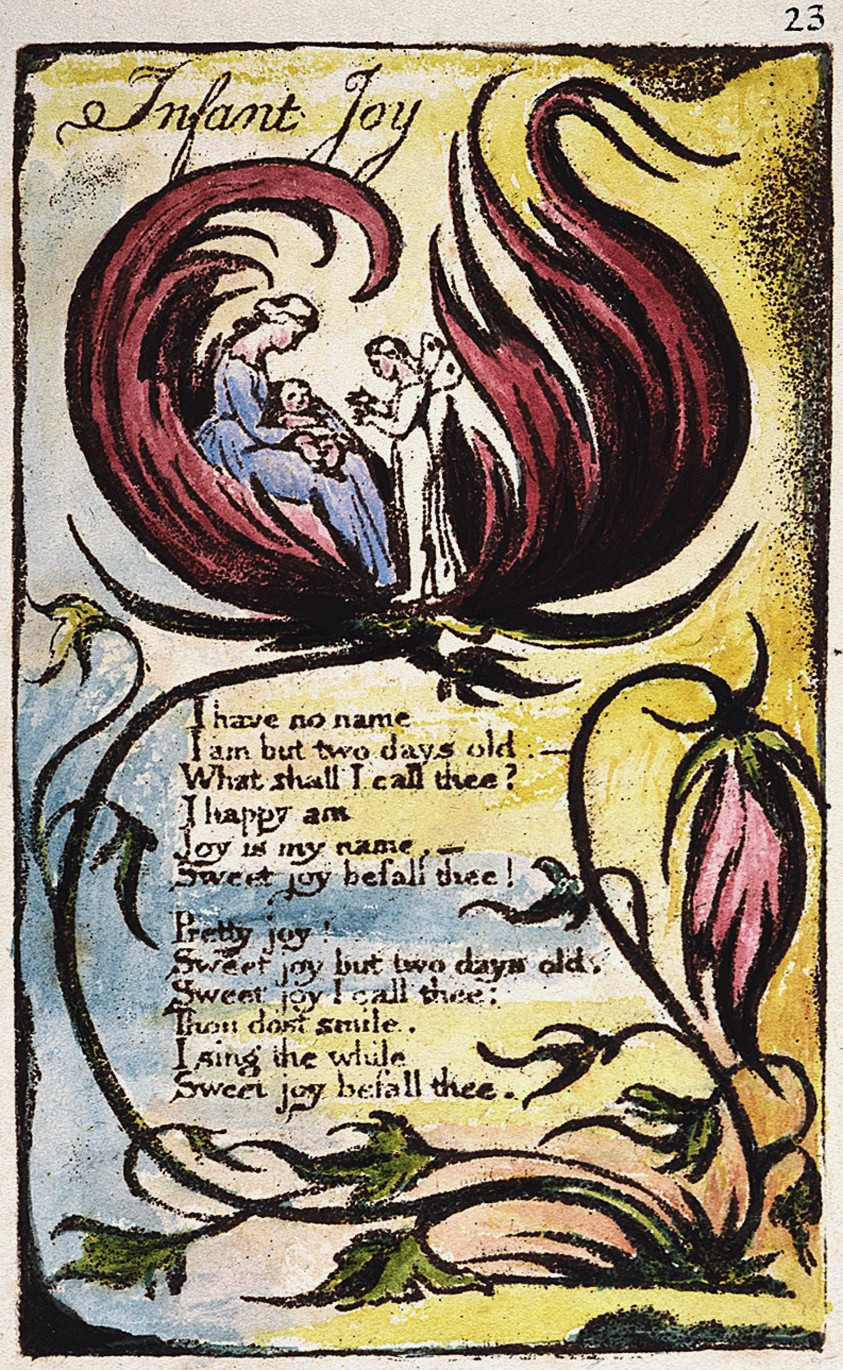 23
Infant Joy
I have no name
I am but two days old.—
What shall I call thee?
I happy am
Joy is my name.—
Sweet joy befall thee!
Pretty joy!
Sweet joy but two days old.
Sweet joy I call thee:
Thou dost smile.
I sing the while
Sweet joy befall thee.